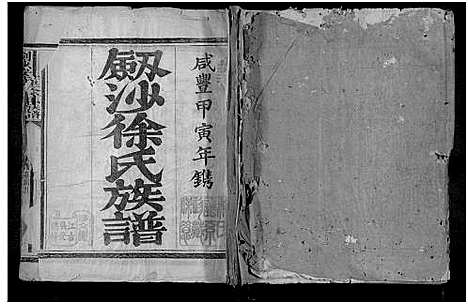 咸豐甲寅年鐫
劔沙徐氏族譜